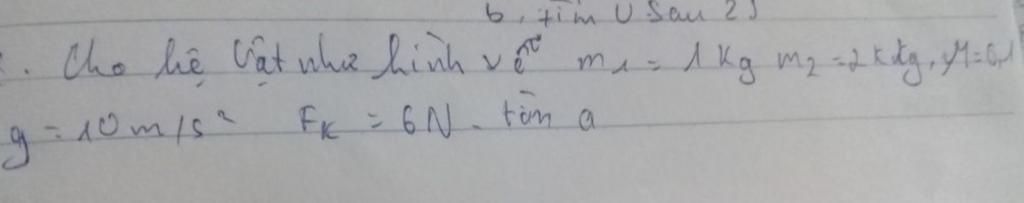 b, tìm v sau 2s
. Cho hệ vật như hình vẽ m1 = 1 kg m2 = 2 kg, μ = 0,1
g = 10 m/s² FK = 6N. tìm a